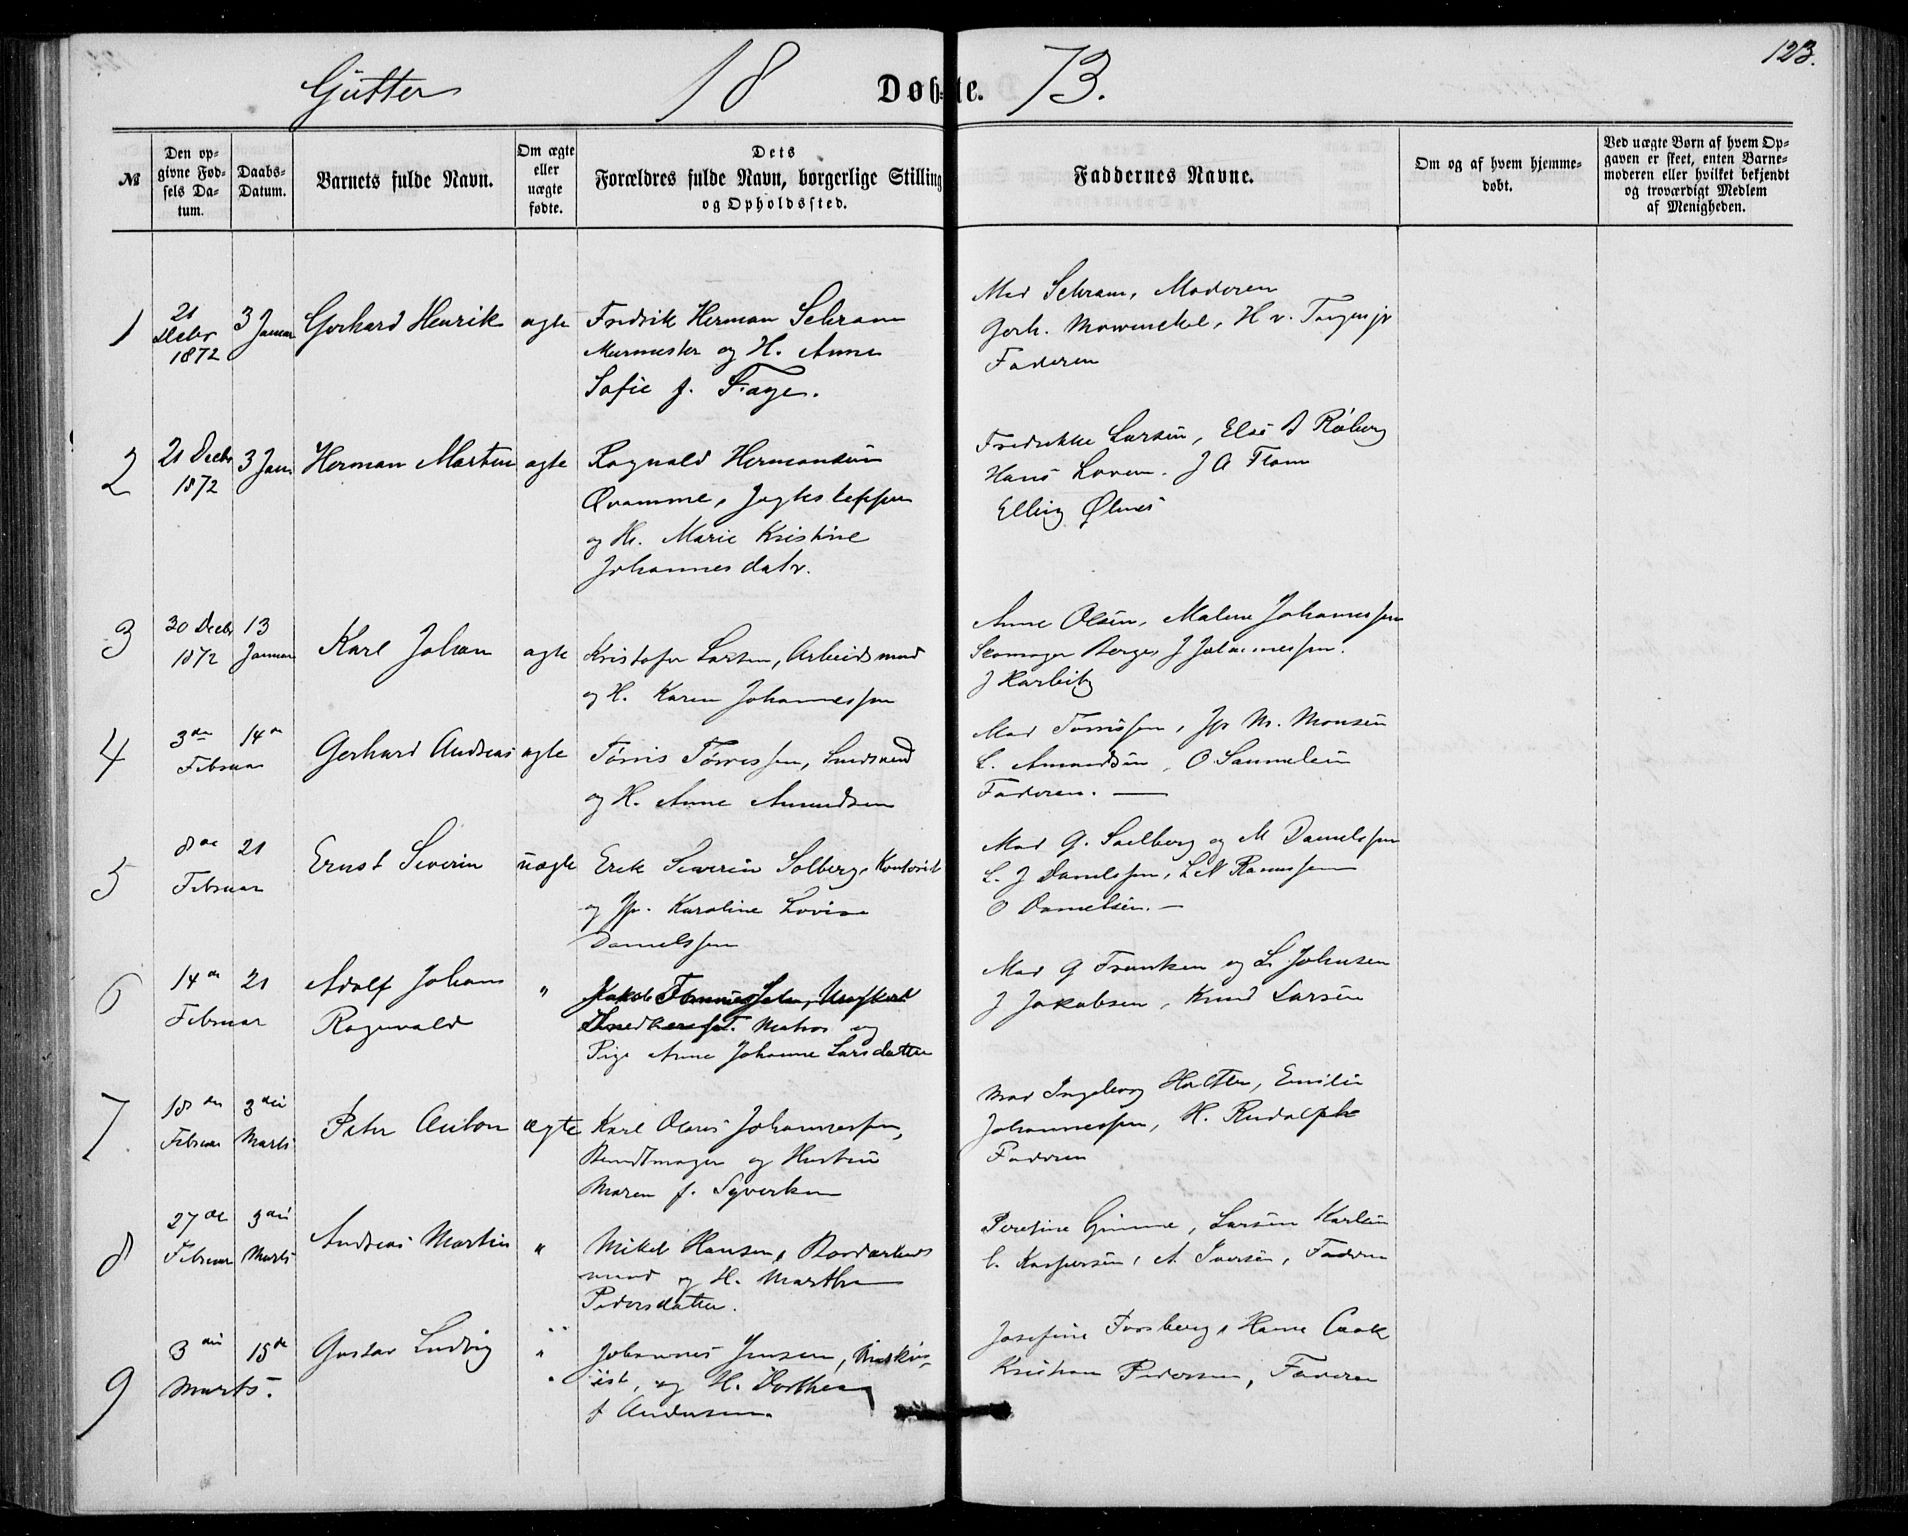 123.
Gutter 18 Døbte. 73.
№
Den opgivne Fødsels Datum.
Daabs-Datum.
Barnets fulde Navn.
Om ægte eller uægte fødte.
Dets Forældres fulde Navn, borgerlige Stilling og Opholdssted.
Faddernes Navne.
Om og af hvem hjemmedøbt.
Ved uægte Børn af hvem Opgaven er skeet, enten Barnemoderen eller hvilket bekjendt og troværdigt Medlem af Menigheden.
1 21 Decbr 1872 3 Januar Gerhard Henrik ægte Fredrik Herman Schram
Murmester og H. Anne
Sofie f. Faye.
Mad Schram, Moderen
Gerh. Mowinckel, H v.
Faderen
2 21 Decbr 1872 3 Jan Herman Martin ægte Ragnvald Hermansen
Qvamme, Jagtskipper
og H. Marie Kristine
Johannesdatr.
Fredrikke Larsen, Else
Hans J A Flam
Elling Ølnes
3 30 Decbr 1872 13 Januar Karl Johan ægte Kristofer Larsen, Arbeidsmand
og H. Karen Johannessen
Anne Olsen, Malene Johannessen
Skomager Berge, J Johannessen.
4 3die Februar 14de Gerhard Andreas ægte Tørris Tørrissen,
og H. Anne Amundsen
Mad Tørrissen, Jfr M. Monsen
L. Amundsen, O Samuelsen
Faderen. —
5 8de Februar 21 Ernst Severin uægte Erik Severin Solberg, Kontorist
og Jfr. Karoline Lovise
Danielssen
Mad G. Solberg og M Danielssen
L. J Danielssen, L N Rasmussen
O Danielsen. —
6 14de Februar 21 Adolf Johan
Ragnvald
" Jakob
Matros og
Pige Anne Johanne Larsdatter
Mad G Franksen og L Johnsen
J Jakobsen, Knud Larsen
7 18de Februar 3die Marts Peter Anton ægte Karl Olaus Johannessen,
Bundtmager og Hustru
Maren f. Syvertsen
Mad Ingeborg Holter, Emilie
Johannessen, H. Rudolph
Faderen
8 27de Februar 3die Marts Andreas Martin " Mikel Hansen, Bordarbeids
mand og H. Marthe
Pedersdatter.
Larsen Karlsen
C. Kaspersen, A. Iversen, Faderen
9 3die Marts. 15de Gustav Ludvig " Johannes Jensen, Maskin-
ist, og H. Dorthea
f Andersen.
Josefine Forsberg, Hanne Cook
Kristian Pedersen, Faderen